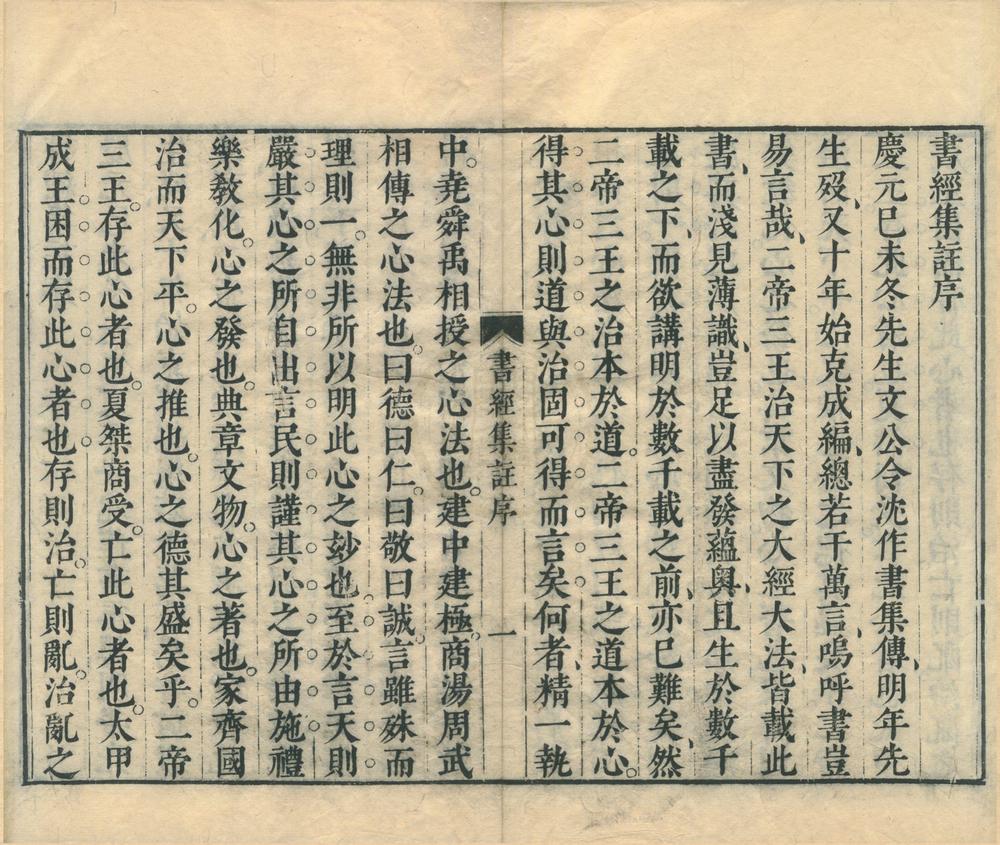 書經集註序
慶元已未冬先生文公令沈作書集傳、明年先
生歿、又十年始克成編、總若干萬言、嗚呼書豈
易言哉、二帝三王治天下之大經大法、皆載此
書、而淺見薄識、豈足以盡發蘊奧、且生於數千
載之下、而欲講明於數千載之前、亦已難矣、然
二帝三王之治本於道。二帝三王之道本於心。
得其心則道與治固可得而言矣何者、精一執
書經集註序 一
中。堯舜禹相授之心法也。建中建極。商湯周武
相傳之心法也。曰德曰仁。曰敬曰誠。言雖殊而
理則一。無非所以明此心之玅也。至於言天則
嚴其心之所自出言民則謹其心之所由施禮
樂敎化。心之發也。典章文物。心之著也。家齊國
治而天下平。心之推也。心之德其盛矣乎。二帝
三王。存此心者也。夏桀商受。亡此心者也。太甲
成王困而存此心者也存則治。亡則亂。治亂之